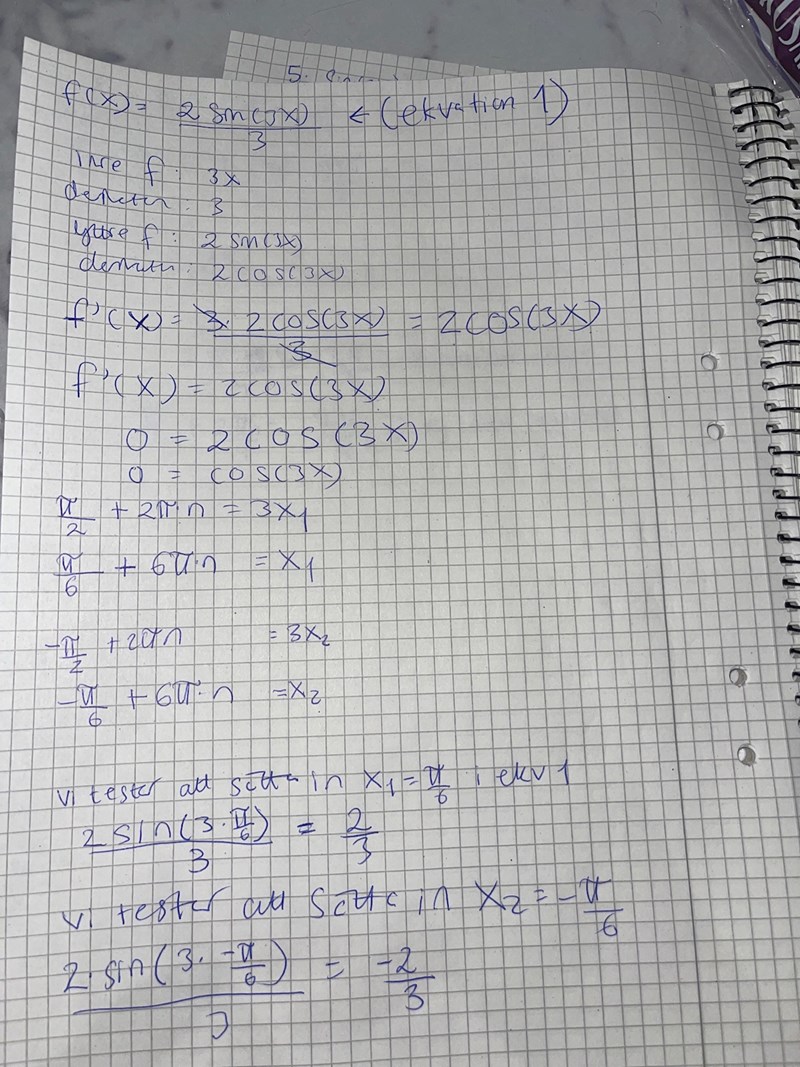 5.
f(x) = 2 sin(3x)/3 ← (ekvation 1)
inre f : 3x
derivatan : 3
yttre f : 2 sin(3x)
derivatan : 2 cos(3x)
f'(x) = 3 · 2 cos(3x)/3 = 2 cos(3x)
f'(x) = 2 cos(3x)
0 = 2 cos(3x)
0 = cos(3x)
π/2 + 2π·n = 3x₁
π/6 + 6π·n = x₁
-π/2 + 2πn = 3x₂
-π/6 + 6π·n = x₂
vi tester att sätta in x₁ = π/6 i ekv 1
2 sin(3·π/6)/3 = 2/3
vi tester att sätta in x₂ = -π/6
2·sin(3·-π/6)/3 = -2/3